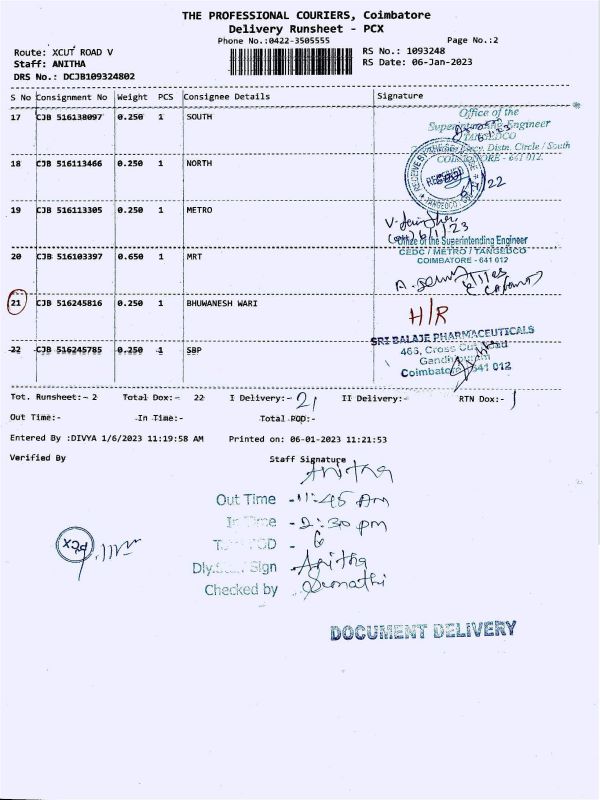 THE PROFESSIONAL COURIERS, Coimbatore
Delivery Runsheet - PCX
Phone No.:0422-3505555
Page No.:2
Route: XCUT ROAD V
RS No.: 1093248
Staff: ANITHA
RS Date: 06-Jan-2023
DRS No.: DCJB109324802
S No Consignment No Weight PCS Consignee Details Signature
17 CJB 516138097 0.250 1 SOUTH
Office of the
Superintending Engineer
TANGEDCO
Distn. Circle / South
COIMBATORE - 641 012.
18 CJB 516113466 0.250 1 NORTH
RECEIVED
TANGEDCO
6/1/22
19 CJB 516113305 0.250 1 METRO
6/1/23
Office of the Superintending Engineer
20 CJB 516103397 0.650 1 MRT
CEDC / METRO / TANGEDCO
COIMBATORE - 641 012
21 CJB 516245816 0.250 1 BHUWANESH WARI
H/R
SRI BALAJE PHARMACEUTICALS
22 CJB 516245785 0.250 1 SBP
466, Cross Cut Road
Gandhipuram
Coimbatore 641 012
Tot. Runsheet:- 2 Total Dox:- 22 I Delivery:- 21 II Delivery:- RTN Dox:- 1
Out Time:- In Time:- Total POD:-
Entered By :DIVYA 1/6/2023 11:19:58 AM Printed on: 06-01-2023 11:21:53
Verified By Staff Signature
Anitha
Out Time - 11:45 Am
In Time - 2:30 pm
POD - 6
Sign - Anitha
Checked by Sumathi
PCX
DOCUMENT DELIVERY